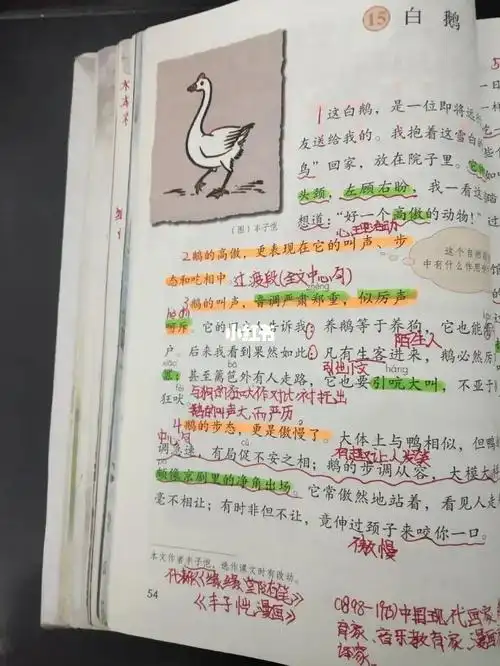 15 白 鹅
1 这白鹅，是一位即将远
友送给我的。我抱着这雪白的
鸟”回家，放在院子里。它
头颈，左顾右盼，我一看这
想道：“好一个高傲的动物！”
心理活动
（图）丰子恺
2 鹅的高傲，更表现在它的叫声、步
态和吃相中。过渡段(全文中心句)
这个自然
中有什么作用
zhèng
3 鹅的叫声，音调严肃郑重，似厉声
呵斥。它的 告诉我：养鹅等于养狗，它也能
陌生人
户。后来我看到果然如此：凡有生客进来，鹅必然厉
引出下文
háng
甚至篱笆外有人走路，它也要引吭大叫，不亚于
狂吠。与狗的狂吠作对比,衬托出
鹅的叫声大而严厉
4 鹅的步态，更是傲慢了。大体上与鸭相似，但鸭
中心句
调急速，有局促不安之相；鹅的步调从容，大模大
颇像京剧里的净角出场。它常傲然地站着，看见人走
毫不相让；有时非但不让，竟伸过颈子来咬你一口。
傲慢
本文作者丰子恺，选作课文时有改动。
代表作《缘缘堂随笔》
《丰子恺漫画》
54
(1898-1975)中国现代画家
育家、音乐教育家、漫画
译家
小红书